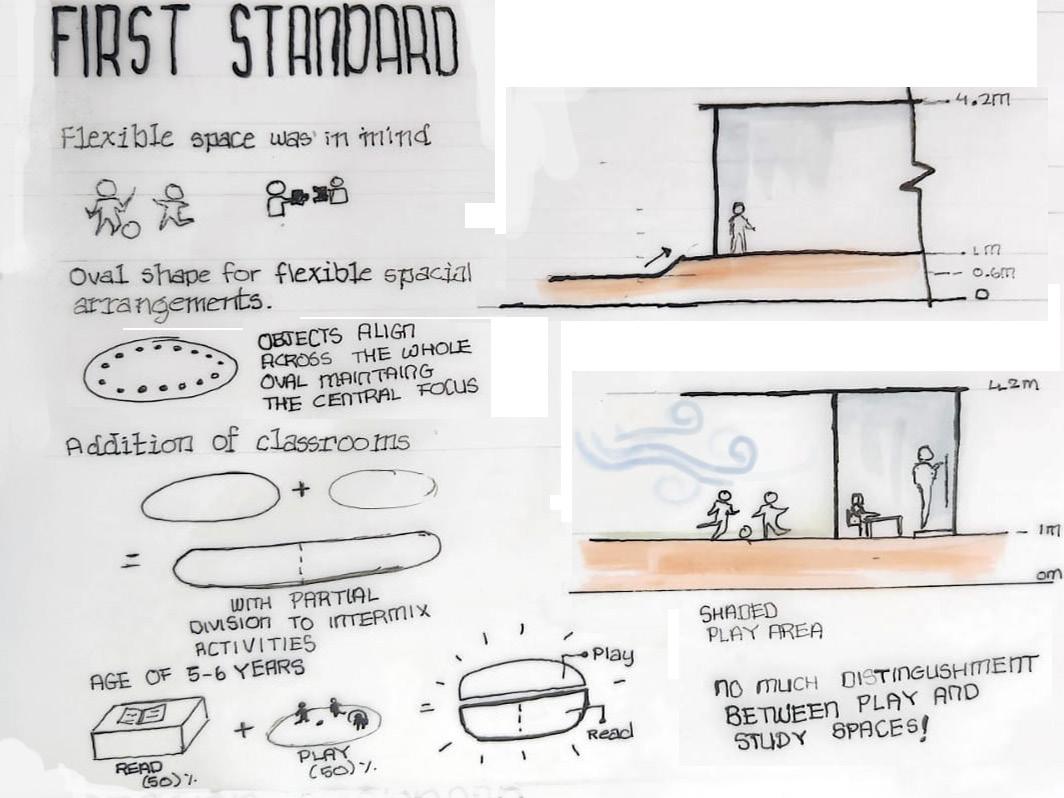 FIRST STANDARD
Flexible space was in mind
Oval shape for flexible spacial
arrangements.
OBJECTS ALIGN
ACROSS THE WHOLE
OVAL MAINTAING
THE CENTRAL FOCUS
Addition of classrooms
+
=
WITH PARTIAL
DIVISION TO INTERMIX
ACTIVITIES
AGE OF 5-6 YEARS
+
=
READ
(50)%
PLAY
(50)%
Play
Read
4.2m
1m
0.6m
0
4.2m
1m
0m
SHADED
PLAY AREA
NO MUCH DISTINGUSHMENT
BETWEEN PLAY AND
STUDY SPACES!